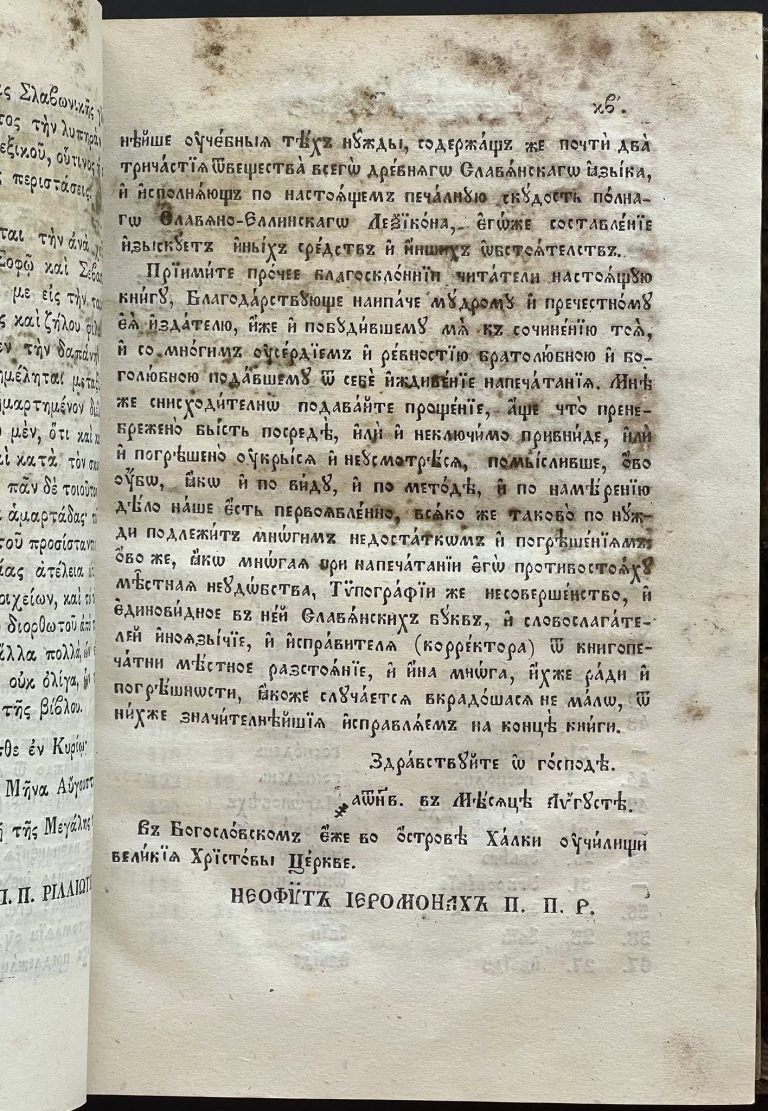 ας Σλαβωνικῆς
τος τὴν λυπηρὰν
εξικοῦ, οὗτινος
ς περιστάσεις.
ται τὴν ἀνὰ
Σοφῷ καὶ Σεβα
με εἰς τὴν
ς καὶ ζήλου
εν τὴν δαπάνην
ημέληται μεταξ
ημαρτημένον
μὲν, ὅτι καὶ
αὶ κατὰ τὸν
πᾶν δὲ τοιοῦτον
ἁμαρτάδας·
τοῦ προσίσταν
ίας ἀτέλεια
οιχείων, καὶ
διορθωτοῦ ἀπὸ
ἄλλα πολλὰ,
οὐκ ὀλίγα,
τῆς βίβλου.
σθε ἐν Κυρίῳ·
Μῆνα Αὔγουστ
ῇ τῆς Μεγάλης
Π. Π. ΡΙΛΛΙΩΤ
кв҃.
нѣйше оуче́бныѧ тѣ́хъ нꙋжды, содержа́щъ же почтѝ два̀
трича́стїѧ ѿвещества̀ всегѡ̀ дре́внѧгѡ Славѧ́нскагѡ ꙗзы́ка,
и҆ и҆сполнѧ́ющъ по настоѧ́щемъ печа́лнꙋю скꙋ́дость по́лна-
гѡ Славѧ́но-Е҆ллинскагѡ Леѯїко́на, є҆гѡ́же составле́нїе
и҆зы́скꙋетъ и҆ны́хъ сре́дствъ и҆ и҆́ншихъ ѡ҆бстоѧ́телствъ.
Прїими́те про́чее благоскло́ннїи чита́тели настоѧ́щꙋю
кни́гꙋ, Благода́рствꙋюще наипа́че мꙋ́дромꙋ и҆ пречестно́мꙋ
є҆ѧ̀ и҆зда́телю, и҆́же и҆ побꙋди́вшемꙋ мѧ̀ къ сочине́нїю тоѧ̀,
и҆ со мно́гимъ оусе́рдїемъ и҆ ре́вностїю братолю́бною и҆ бо-
голю́бною пода́вшемꙋ ѿ себѐ и҆ждиве́нїе напеча́танїѧ. Мнѣ́
же снисходи́телнѡ подава́йте проще́нїе, а҆́ще что̀ прене-
бреже́но бы́сть посредѣ̀, и҆лѝ и҆ неключи́мо привни́де, и҆лѝ
и҆ погрѣшено̀ оукры́сѧ и҆ неусмотрѣ́сѧ, помы́сливше, ѻ҆́во
оу҆́бѡ, ꙗ҆́кѡ и҆ по ви́дꙋ, и҆ по мето́дѣ, и҆ по намѣ́ренїю
дѣ́ло на́ше є҆́сть первоѧвле́нно, всѧ́ко же таково̀ по нꙋж-
ди подлежи́тъ мнѡ́гимъ недоста́ткѡмъ и҆ погрѣше́нїѧмъ:
ѻ҆́во же, ꙗ҆́кѡ мнѡ́гаѧ при напеча́танїи є҆гѡ̀ противостоѧ́хꙋ
мѣ́стнаѧ неудѡ́бства, Тѷпогра́фїи же несоверше́нство, и҆
є҆динови́дное въ не́й Славѧ́нскихъ бꙋ́квъ, и҆ словослага́те-
лей и҆ноѧзы́чїе, и҆ и҆спра́вителѧ (корре́ктора) ѿ книгопе-
ча́тни мѣ́стное разстоѧ́нїе, и҆ и҆́на мнѡ́га, и҆́хже ра́ди и҆
погрѣ́шнѡсти, ꙗ҆́коже слꙋча́етсѧ вкрадо́шасѧ не ма́лѡ, ѿ
ни́хже значи́телнѣйшїѧ и҆справлѧ́емъ на концѣ̀ кни́ги.
Здра́вствꙋйте ѡ го́сподѣ.
҂аѡнв. въ Мѣ́сѧцѣ Аѵ҆́гꙋстѣ.
Въ Богосло́вскомъ є҆́же во ѻ҆́стровѣ Ха́лки оучи́лищи
вели́кїѧ Хрїсто́вы Це́ркве.
НЕОФѴТЪ ІЕРОМОНАХЪ П. П. Р.